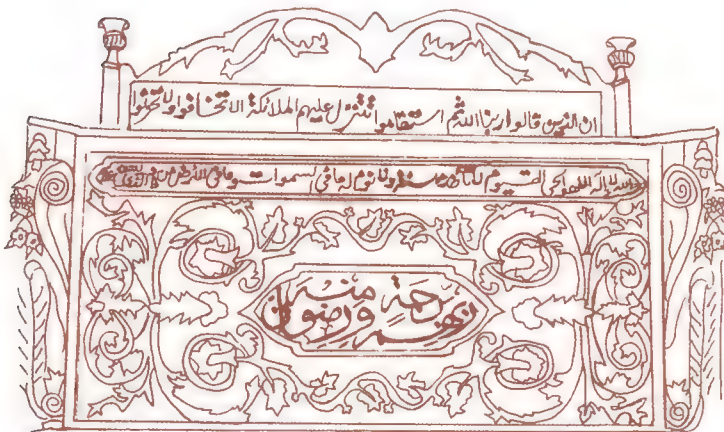 ان الذين قالوا ربنا الله ثم استقاموا تتنزل عليهم الملائكة الا تخافوا ولا تحزنوا
الله لا إله إلا هو الحي القيوم لا تأخذه سنة ولا نوم له ما في السموات وما في الأرض من ذا الذي
ربهم برحمة منه ورضوان